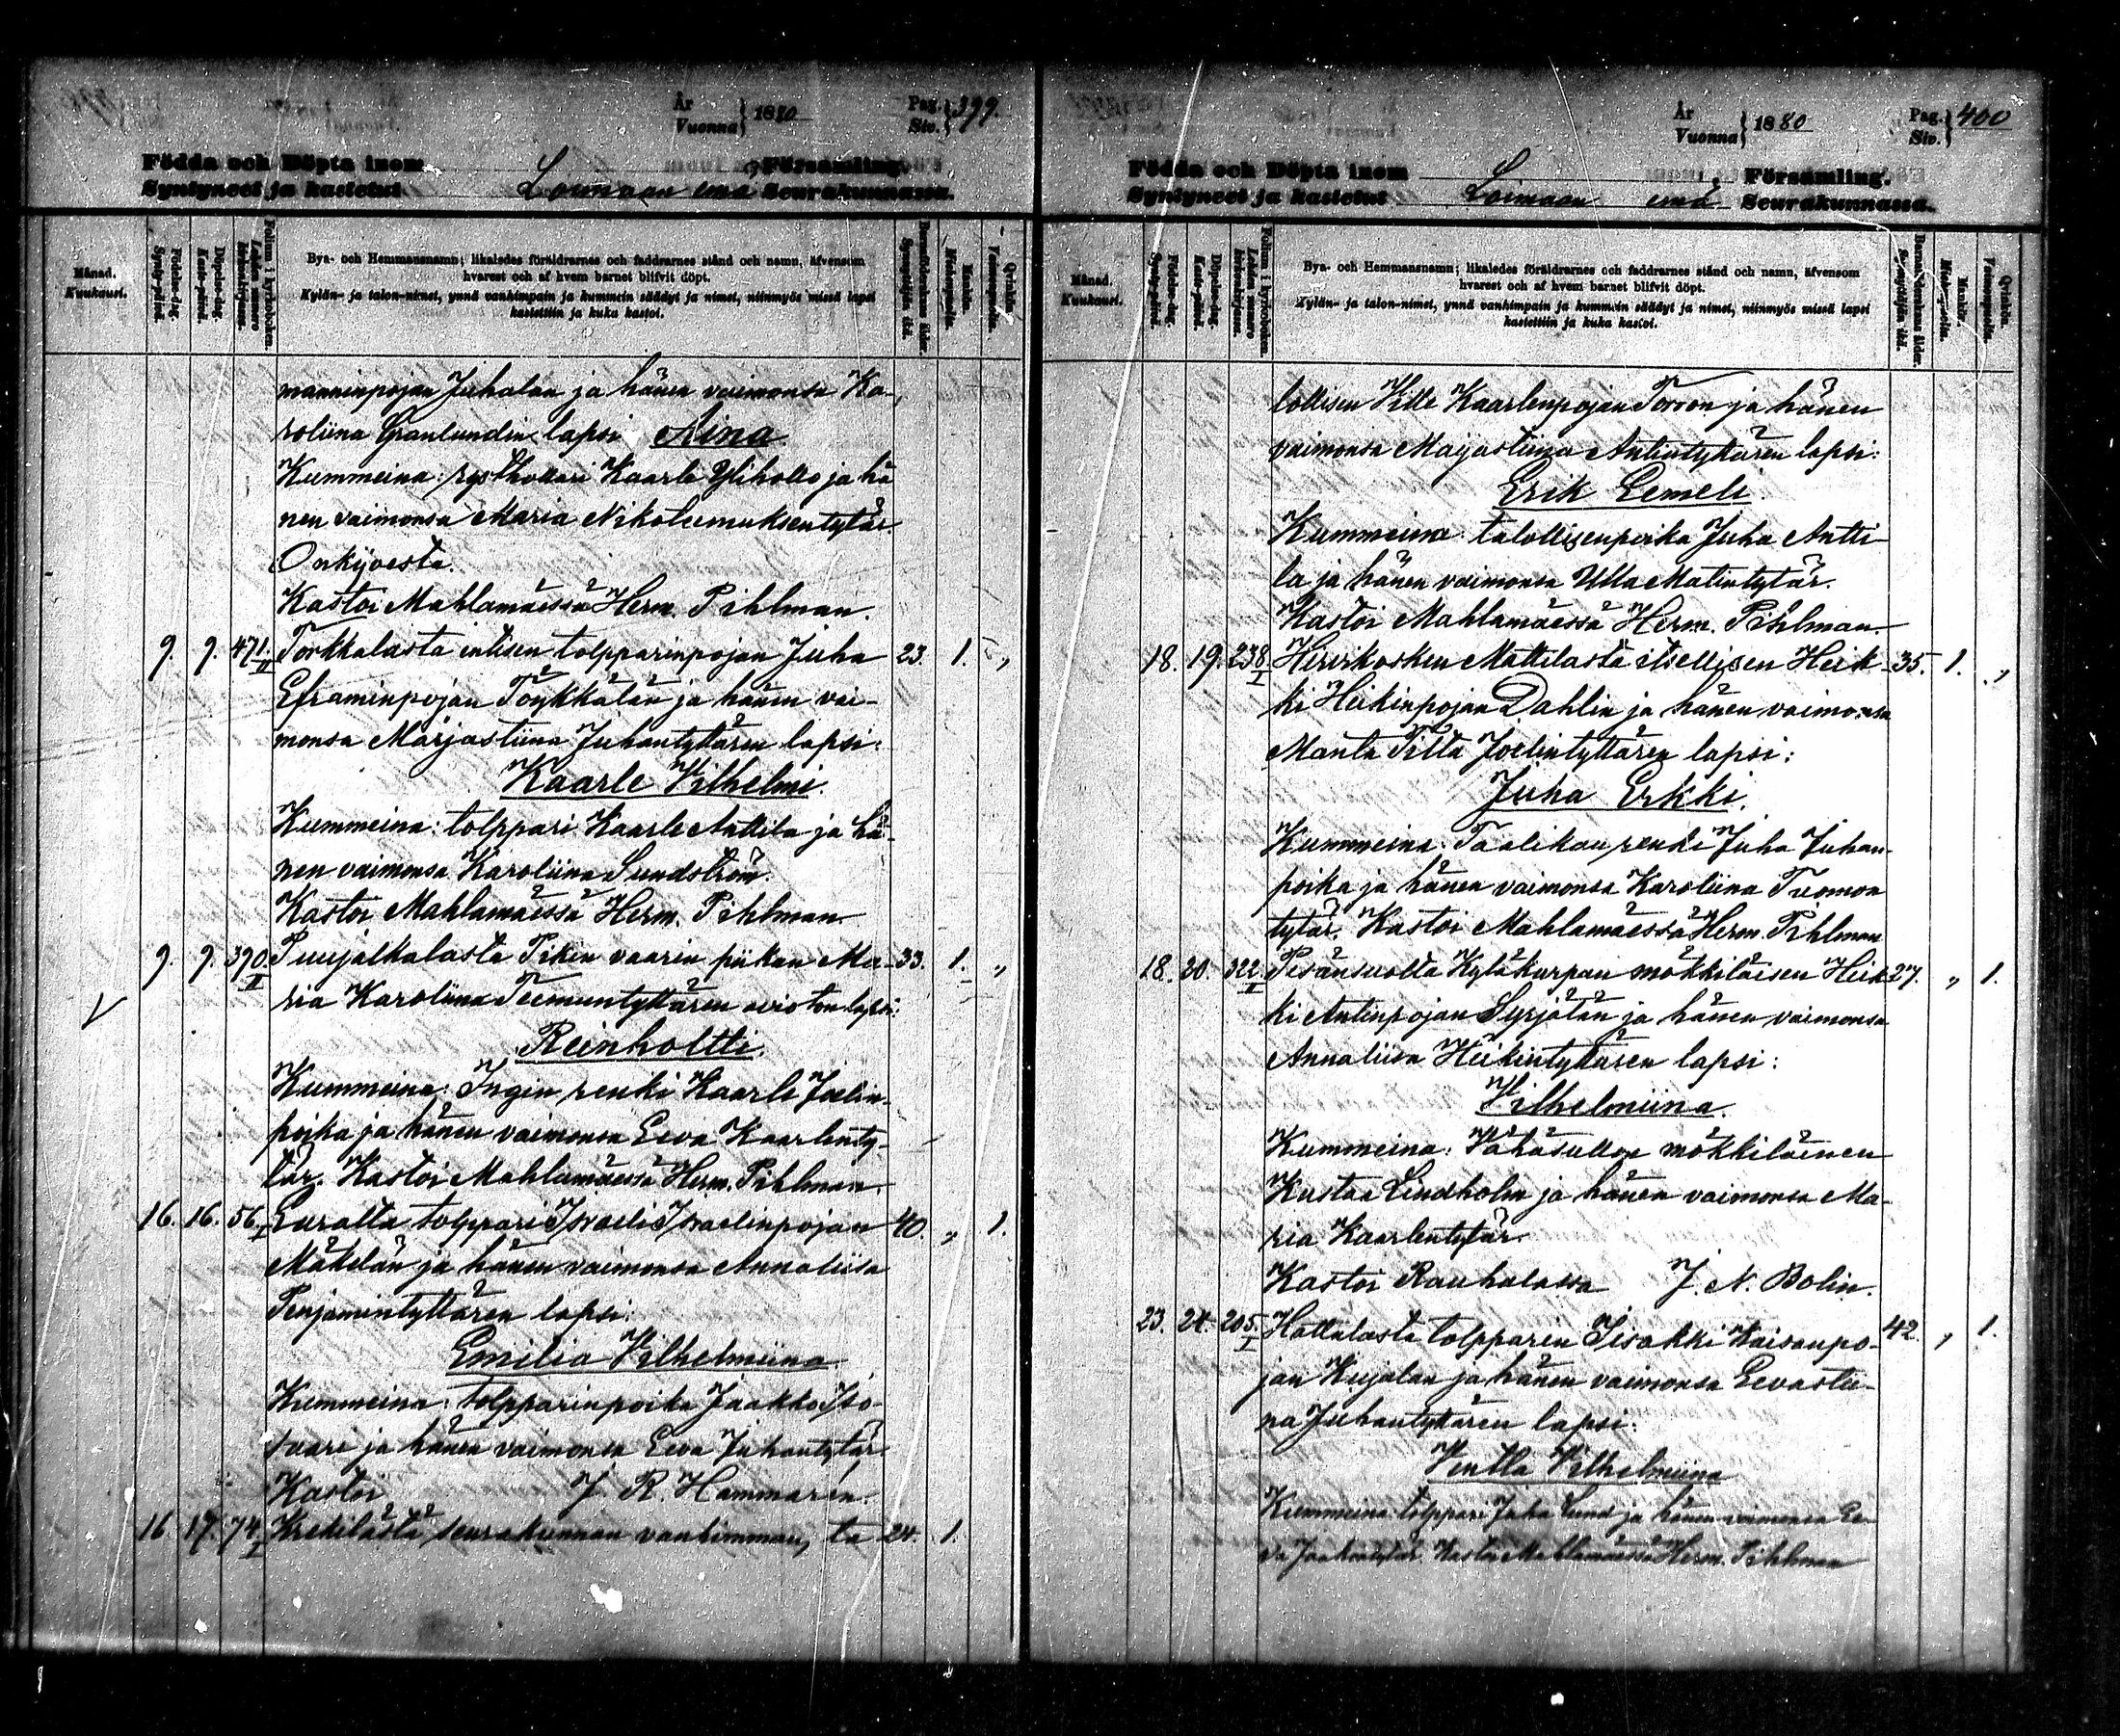 År
Vuonna } 1880
Pag.
Siv. } 399.
Födda och Döpta inom Församling.
Syntyneet ja kastetut Loimaan emä Seurakunnassa.
Månad.
Kuukausi.
Födelse-dag.
Synty-päivä.
Döpelse-dag.
Kaste-päivä.
Folium i kyrkoboken.
Lehden numero kirkonkirjassa.
Bya- och Hemmansnamn; likaledes föräldrarnes och faddrarnes stånd och namn, äfvensom
hvarest och af hvem barnet blifvit döpt.
Kylän- ja talon-nimet, ynnä vanhimpain ja kummein säädyt ja nimet, niinmyös missä lapsi
kastettiin ja kuka kastoi.
Barnaföderskans ålder.
Synnyttäjän ikä.
Mankön.
Miehenpuolia.
Qvinkön.
Vaimonpuolia.
manninpojan Juhalan ja hänen vaimonsa Ka-
roliina Granlundin lapsi Aina.
Kummeina: rysthollari Kaarle Ylihollo ja hä
nen vaimonsa Maria Nikolemuksentytär
Onkijoesta.
Kastoi Mahlamäessä Herm. Pihlman.
9. 9. 471. II Torkkalasta entisen tolpparinpojan Juha 23. 1. „
Eframinpojan Töykkälän ja hänen vai-
monsa Marjastiina Juhantyttären lapsi:
Kaarle Vilhelmi.
Kummeina: tolppari Kaarle Anttila ja hä-
nen vaimonsa Karoliina Sundström.
Kastoi Mahlamäessä Herm. Pihlman.
9. 9. 390. II Puujalkalasta Pikin vaarin piikan Ma- 33. 1. „
ria Karoliina Teemuntyttären aviston lapsi:
Reinholtti.
Kummeina: Ingin renki Kaarle Joelin-
poika ja hänen vaimonsa Eeva Kaarlenty-
tär. Kastoi Mahlamäessä Herm. Pihlman.
16. 16. 56. I Euralta tolppari Israeli Israelinpojan 40. „ 1.
Mäkelän ja hänen vaimonsa Annaliisa
Penjamintyttären lapsi:
Emilia Vilhelmiina
Kummeina: tolpparinpoika Jaakko Iso-
saari ja hänen vaimonsa Eeva Juhantytär.
Kastoi J. R. Hammarén.
16 17. 74. I Krekilästä seurakunnan vanhimman, ta 24. 1.
År
Vuonna } 1880
Pag.
Siv. } 400
Födda och Döpta inom Församling.
Syntyneet ja kastetut Loimaan emä Seurakunnassa.
Månad.
Kuukausi.
Födelse-dag.
Synty-päivä.
Döpelse-dag.
Kaste-päivä.
Folium i kyrkoboken.
Lehden numero kirkonkirjassa.
Bya- och Hemmansnamn; likaledes föräldrarnes och faddrarnes stånd och namn, äfvensom
hvarest och af hvem barnet blifvit döpt.
Kylän- ja talon-nimet, ynnä vanhimpain ja kummein säädyt ja nimet, niinmyös missä lapsi
kastettiin ja kuka kastoi.
Barnaföderskans ålder.
Synnyttäjän ikä.
Mankön.
Miehenpuolia.
Qvinkön.
Vaimonpuolia.
lollisen Ville Kaarlenpojan Torron ja hänen
vaimonsa Maijastiina Antintyttären lapsi:
Erik Eemeli.
Kummeina: talollisenpoika Juha Antti-
la ja hänen vaimonsa Ulla Matintytär.
Kastoi Mahlamäessä Herm. Pihlman.
18. 19. 238 I Hirvikosken Mattilasta itsellisen Heik- 35. 1. „
ki Heikinpojan Dahlin ja hänen vaimonsa
Manta Tilta Joelintyttären lapsi:
Juha Erkki.
Kummeina: Taalikan renki Juha Juhan-
poika ja hänen vaimonsa Karoliina Tuomon
tytär. Kastoi Mahlamäessä Herm. Pihlman
18. 20. 322 I Pesänsuolta Kyläkurpan mökkiläisen Heik- 27. „ 1.
ki Antinpojan Syrjälän ja hänen vaimonsa
Annaliisa Heikintyttären lapsi:
Vilhelmiina.
Kummeina: mökkiläinen
Kustaa Lindholm ja hänen vaimonsa Ma-
ria Kaarlentytär.
Kastoi Rauhalassa J. N. Bolin.
23. 24. 205. I Hattalasta tolpparin Iisakki Kaisanpo- 42. „ 1.
jan Kujalan ja hänen vaimonsa Eevastii-
na Juhantyttären lapsi:
Ventla Vilhelmiina
Kummeina: tolppari Juha Lund ja hänen vaimonsa Ee-
va Jaakontytär. Kastoi Mahlamäessä Herm. Pihlman